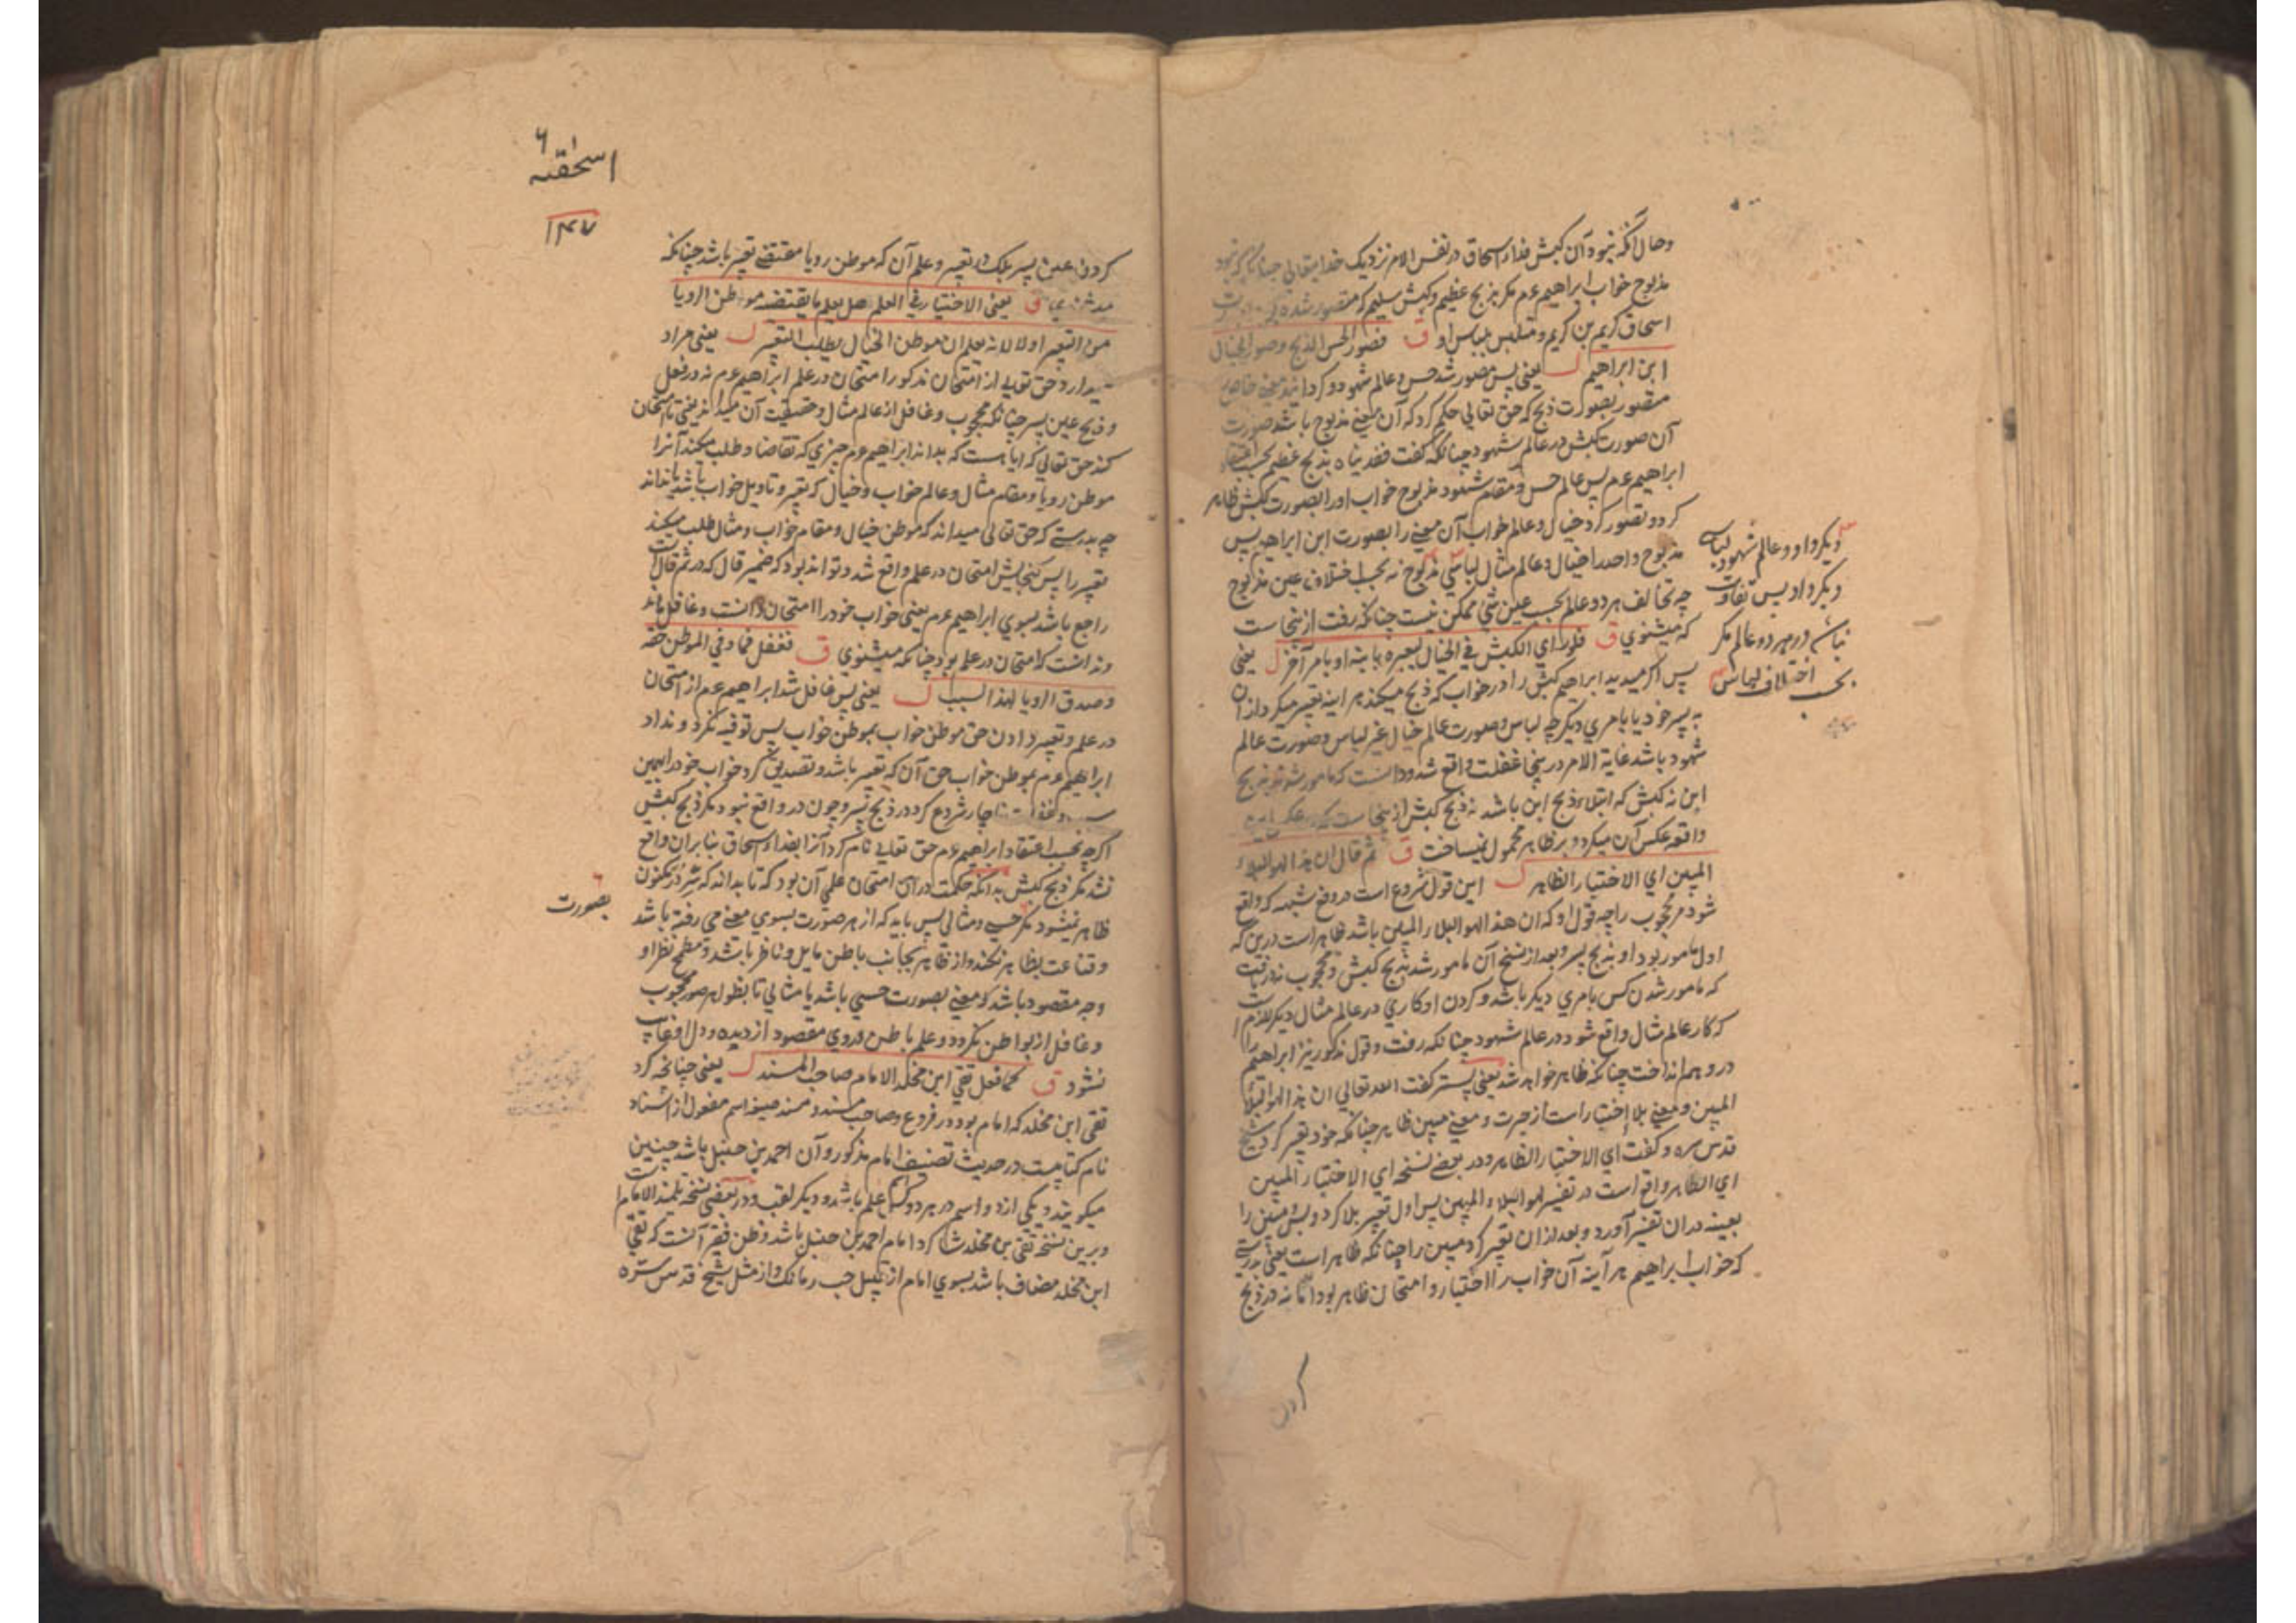 وحال آنکه نبود آن کبش فداء اسحاق در نفس الامر نزدیک خدایتعالی چنانکه نبود
مذبوح خواب ابراهیم عم مکر بذبح عظیم وکبش سلیم که متصور شده
اسحاق کریم بن کریم و متلبس بلباس او ق فصور الحس الذبح وصور الخیال
ابن ابراهیم ل یعنی پس مصور شد حس و عالم شهود و کردانید معنی خاص
متصور بصورت ذبح که حق تعالی حکم کرد که آن معنی مذبوح باشد صورت
آن صورت کبش در عالم شهود چنانکه کفت ففدیناه بذبح عظیم بحسب اعتقاد
ابراهیم عم پس عالم حس و مقام شهود مذبوح خواب او را بصورت کبش ظاهر
کرد و تصور کرد خیال و عالم خواب آن معنی را بصورت ابن ابراهیم پس
مذبوح واحد را خیال و عالم مثال لباسی نه بحسب اختلاف عین مذبوح
چه تخالف هر دو عالم بحسب عین شئ ممکن نیست چنانکه رفت از ینجاست
که میشنوی ق فلو رای الکبش فی الخیال لعبره بابنه او بامر آخر ل یعنی
پس اکر میدید ابراهیم کبش را در خواب که ذبح میکند هر اینه تعبیر میکرد از آن
به پسر خود یا بامری دیکر چه لباس و صورت عالم خیال غیر لباس و صورت عالم
شهود باشد غایة الامر در ینجا غفلت واقع شد و دانست که مامور شد بذبح
ابن نه کبش که ابتلاء ذبح ابن باشد نه ذبح کبش از ینجاست که
واقعه عکس آن میکرد و بر ظاهر محمول نمیساخت ق ثم قال ان هذا لهو البلاء
المبین ای الاختبار الظاهر ل این قول شروع است در دفع شبهه که واقع
شود مر محجوب را چه قول او که ان هذا لهو البلاء المبین باشد ظاهر است درین که
اول مامور بود او بذبح پسر و بعد از نسخ آن مامور شد بذبح کبش و محجوب ندریافت
که مامور شدن کس بامری دیکر باشد و کردن او کاری در عالم مثال دیکر
که کار عالم مثال واقع شود در عالم شهود چنانکه رفت و قول مذکور نیز ابراهیم را
در وهم انداخت چنانکه ظاهر خواهد شد یعنی پستر کفت الله تعالی ان هذا لهو البلاء
المبین و معنی بلا اختبار است از و معنی مبین ظاهر چنانکه خود تعبیر کرد شیخ
قدس سره و کفت ای الاختبار الظاهر و در بعضی نسخه ای الاختبار المبین
ای الظاهر واقع است در تفسیر لهو البلاء المبین پس اول تعبیر بلا کرد و پس مبین را
بعینه در آن تفسیر آورد و بعد از آن تعبیر کرد مبین را چنانکه ظاهر است یعنی بدرستی
که خواب ابراهیم هر آینه آن خواب را اختبار و امتحان ظاهر بود اما نه در ذبح
کردن
دیکر داد و عالم شهود لباس
دیکر داد پس تفاوت
نباشد در هر دو عالم مکر
بحسب اختلاف لباس
اسحٰقیه
۱۴۷
کردن عین پسر بلک در تعبیر و علم آن که موطن رویا مقتضی تعبیر باشد چنانکه
ق یعنی الاختبار فی العلم هل یعلم ما یقتضیه موطن الرویا
من التعبیر اولا لانه یعلم ان موطن الخیال یطلب التعبیر ل یعنی مراد
میدارد حق تعالی از امتحان مذکور امتحان در علم ابراهیم عم نه در فعل
و ذبح عین پسر چنانکه محجوب و غافل از عالم مثال و حقیقت آن میداند یعنی تا امتحان
کند حق تعالی که آیا هست که بداند ابراهیم عم چیزی که تقاضا و طلب میکند آنرا
موطن رویا و مقام مثال و عالم خواب و خیال که تعبیر و تاویل خواب باشد یا نداند
چه بدرستی که حق تعالی میداند که موطن خیال و مقام خواب و مثال طلب میکند
تعبیر را پس امتحان در علم واقع شد و تواند بود که ضمیر قال که در ثم قال است
راجع باشد بسوی ابراهیم عم یعنی خواب خود را امتحان دانست و غافل ماند
و ندانست که امتحان در علم بود چنانکه میشنوی ق فغفل فما وفی الموطن حقه
وصدق الرویا لهذا السبب ل یعنی پس غافل شد ابراهیم عم از امتحان
در علم و تعبیر دادن حق موطن خواب بموطن خواب پس توفیه نکرد و نداد
ابراهیم عم بموطن خواب حق آن که تعبیر باشد و تصدیق کرد خواب خود را بهمین
ناچار شروع کرد در ذبح پسر و چون در واقع نبود مکر ذبح کبش
اکرچه بحسب اعتقاد ابراهیم عم حق تعالی نام کرد آنرا بفداء اسحاق بنا بر آن واقع
نشد مکر ذبح کبش بدانکه حکمت در آن امتحان علمی آن بود که تا بداند که سر مکنون
ظاهر نمیشود مکر حسی و مثالی پس باید که از هر صورت بسوی معنی می رفته باشد
و قناعت بظاهر نکند و از ظاهر بجانب باطن مایل و ناظر باشد و مطمح نظر او
وجه مقصود باشد که معنی بصورت حسی باشد یا مثالی تا بظواهر صور محجوب
و غافل از بواطن نکردد و علم باطن و روی مقصود از دیده و دل او غایب
نشود ق کما فعل تقی ابن مخلد الامام صاحب المسند ل یعنی چنانکه کرد
تقی ابن مخلد که امام بود در فروع و صاحب مسند و مسند صیغه اسم مفعول از اسناد
نام کتابیست در حدیث تصنیف امام مذکور و آن احمد بن حنبل باشد چنین
میکویند و یکی از دو اسم در هر دو علم باشد و دیکر لقب و در بعضی نسخه تلمیذ الامام است
و برین نسخه تقی بن مخلد شاکرد امام احمد بن حنبل باشد و ظن فقیر آنست که تقی
ابن مخلد مضاف باشد بسوی امام از قبیل حب رمانک و از مثل شیخ قدس سره
بصورت